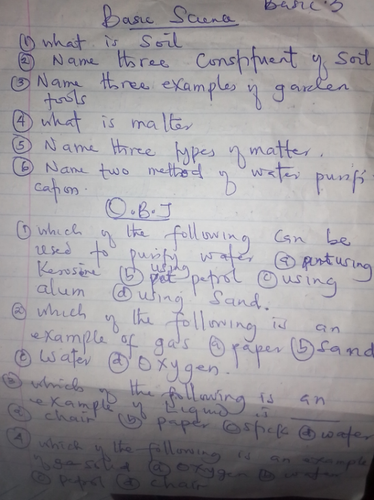 Basic 3
Basic Science
① what is Soil
② Name three Constituent of Soil
③ Name three examples of garden
tools
④ what is matter
⑤ Name three types of matter.
⑥ Name two method of water purifi
cation.
O.B.J
① which of the following can be
used to purify water ⓐ using
Kerosine ⓑ using petrol ⓒ using
alum ⓓ using Sand.
② which of the following is an
example of gas ⓐ paper ⓑ Sand
ⓒ Water ⓓ Oxygen.
③ which of the following is an
example of liquid is ___
ⓐ chair ⓑ paper ⓒ stick ⓓ water
④ which of the following is an example
of solid ⓐ oxygen ⓑ water
ⓒ petrol ⓓ chair